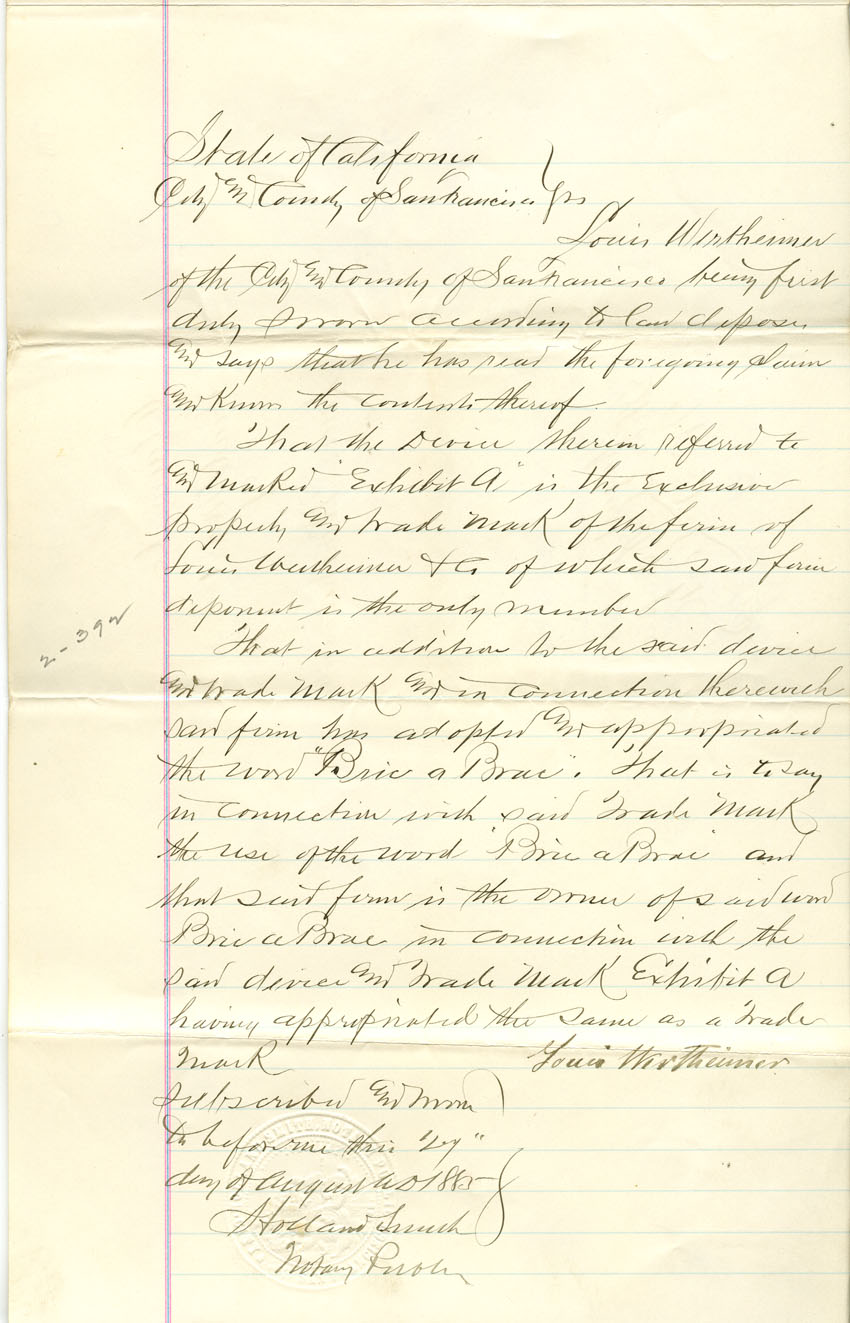 State of California
City and County of San Francisco } ss
Louis Wertheimer
of the City and County of San Francisco being first
duly sworn according to law deposes
and says that he has read the foregoing claim
and knows the contents thereof.
That the Device therein referred to
and marked "Exhibit A" is the Exclusive
property and trade mark of the firm of
Louis Wertheimer & Co of which said firm
deponent is the only member
That in addition to the said device
and trade mark and in connection therewith
said firm has adopted and appropriated
the word "Bric a Brac". That is to say
in connection with said Trade Mark
the use of the word "Bric a Brac" and
that said firm is the owner of said word
Bric a Brac in connection with the
said device and Trade Mark Exhibit A
having appropriated the same as a Trade
Mark
Louis Wertheimer
Subscribed and sworn
to before me this
day of August AD 1885
Holland Smith
Notary Public
2-392